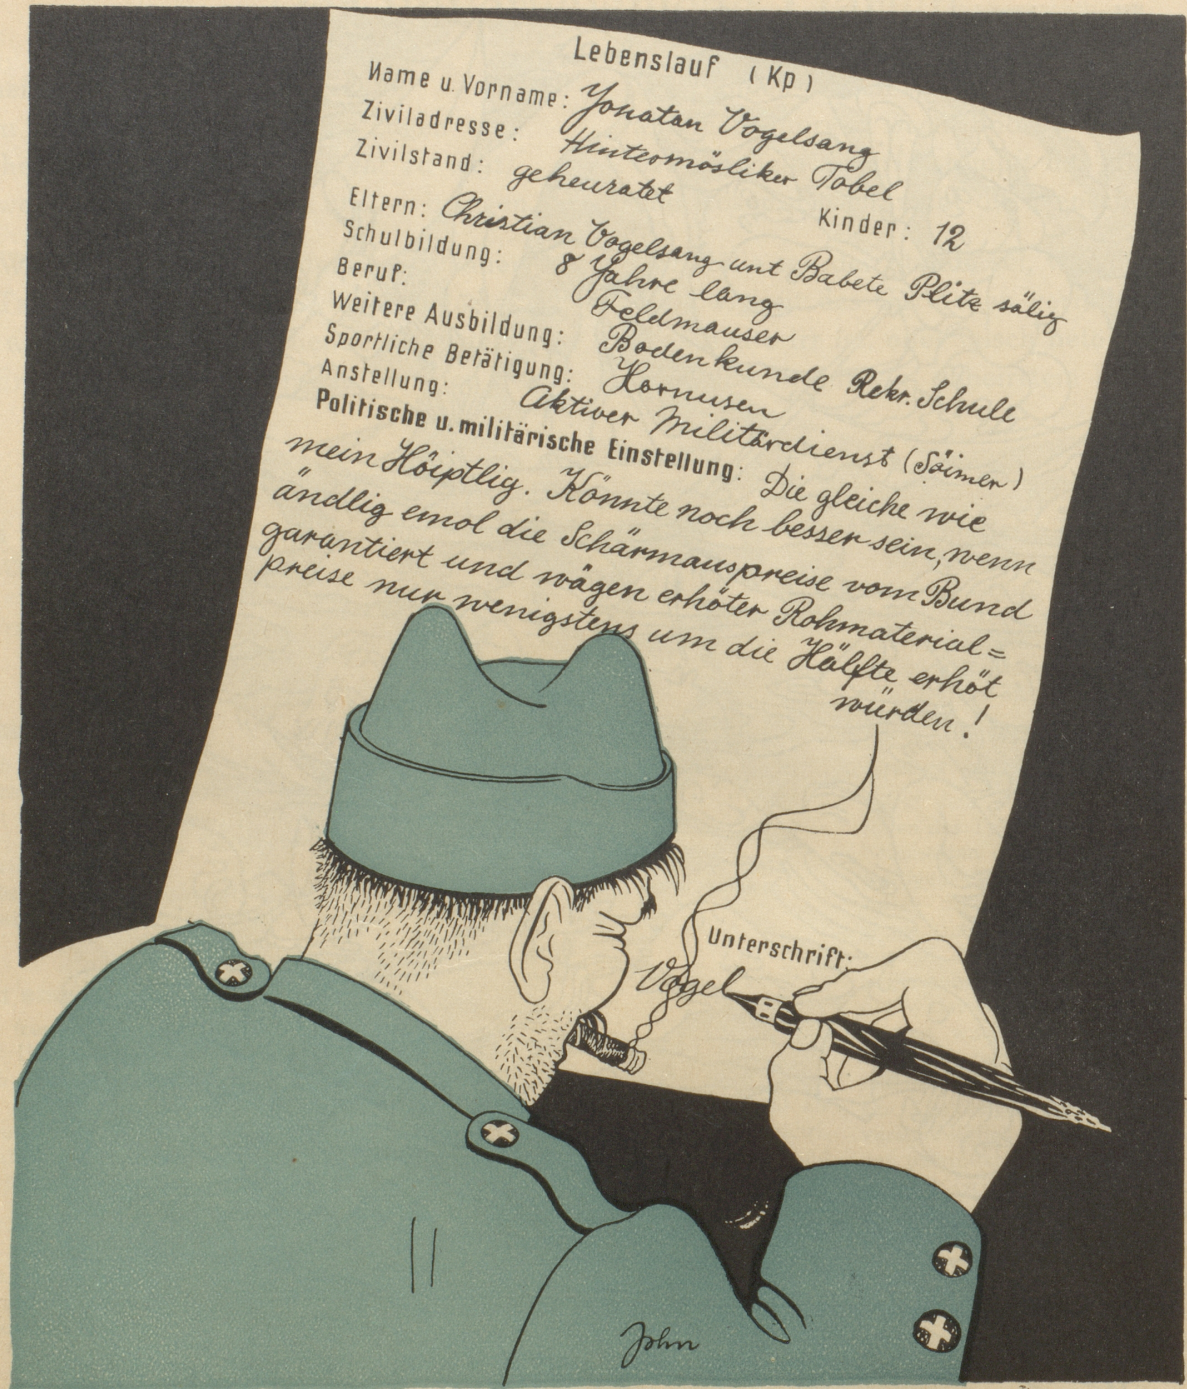 Lebenslauf (Kp)
Name u. Vorname: Yonatan Vogelsang
Ziviladresse: Hintermösliker Tobel
Zivilstand: geheuratet Kinder: 12
Eltern: Christian Vogelsang unt Babete Plitz sälig
Schulbildung: 8 Yahre lang
Beruf: Feldmauser
Weitere Ausbildung: Bodenkunde Rekr. Schule
Sportliche Betätigung: Hornusen
Anstellung: Aktiver Militärdienst (Söimer)
Politische u. militärische Einstellung: Die gleiche wie
mein Höiptlig. Könnte noch besser sein, wenn
ändlig emol die Schärmauspreise vom Bund
garantiert und wägen erhöter Rohmaterial=
preise nur wenigstens um die Hälfte erhöt
würden!
Unterschrift:
Vogel
John